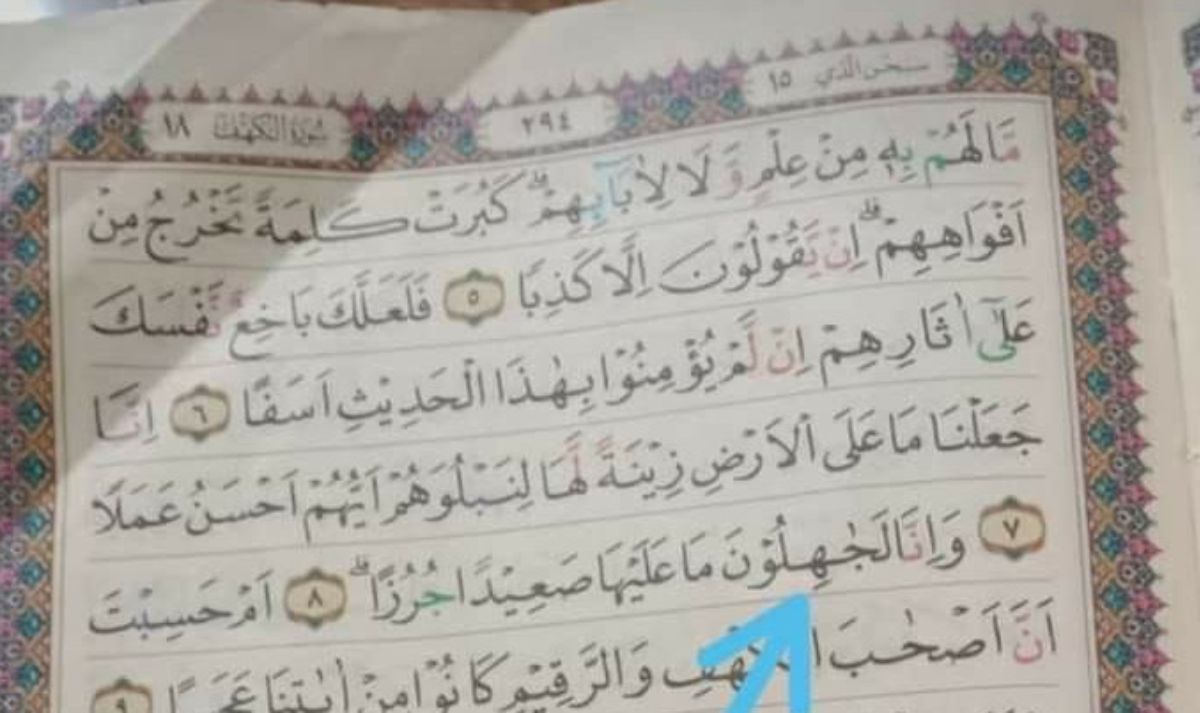 سبحن الذي ١٥
٢٩٤
سُورَةُ الْكَهْف ١٨
مَّا لَهُمْ بِهٖ مِنْ عِلْمٍ وَّلَا لِاٰبَاۤىِٕهِمْۗ كَبُرَتْ كَلِمَةً تَخْرُجُ مِنْ
اَفْوَاهِهِمْۗ اِنْ يَّقُوْلُوْنَ اِلَّا كَذِبًا ٥ فَلَعَلَّكَ بَاخِعٌ نَّفْسَكَ
عَلٰٓى اٰثَارِهِمْ اِنْ لَّمْ يُؤْمِنُوْا بِهٰذَا الْحَدِيْثِ اَسَفًا ٦ اِنَّا
جَعَلْنَا مَا عَلَى الْاَرْضِ زِيْنَةً لَّهَا لِنَبْلُوَهُمْ اَيُّهُمْ اَحْسَنُ عَمَلًا
٧ وَاِنَّا لَجٰهِلُوْنَ مَا عَلَيْهَا صَعِيْدًا جُرُزًاۗ ٨ اَمْ حَسِبْتَ
اَنَّ اَصْحٰبَ وَالرَّقِيْمِ كَانُوْا مِنْ اٰيٰتِنَا عَجَبًا ٩